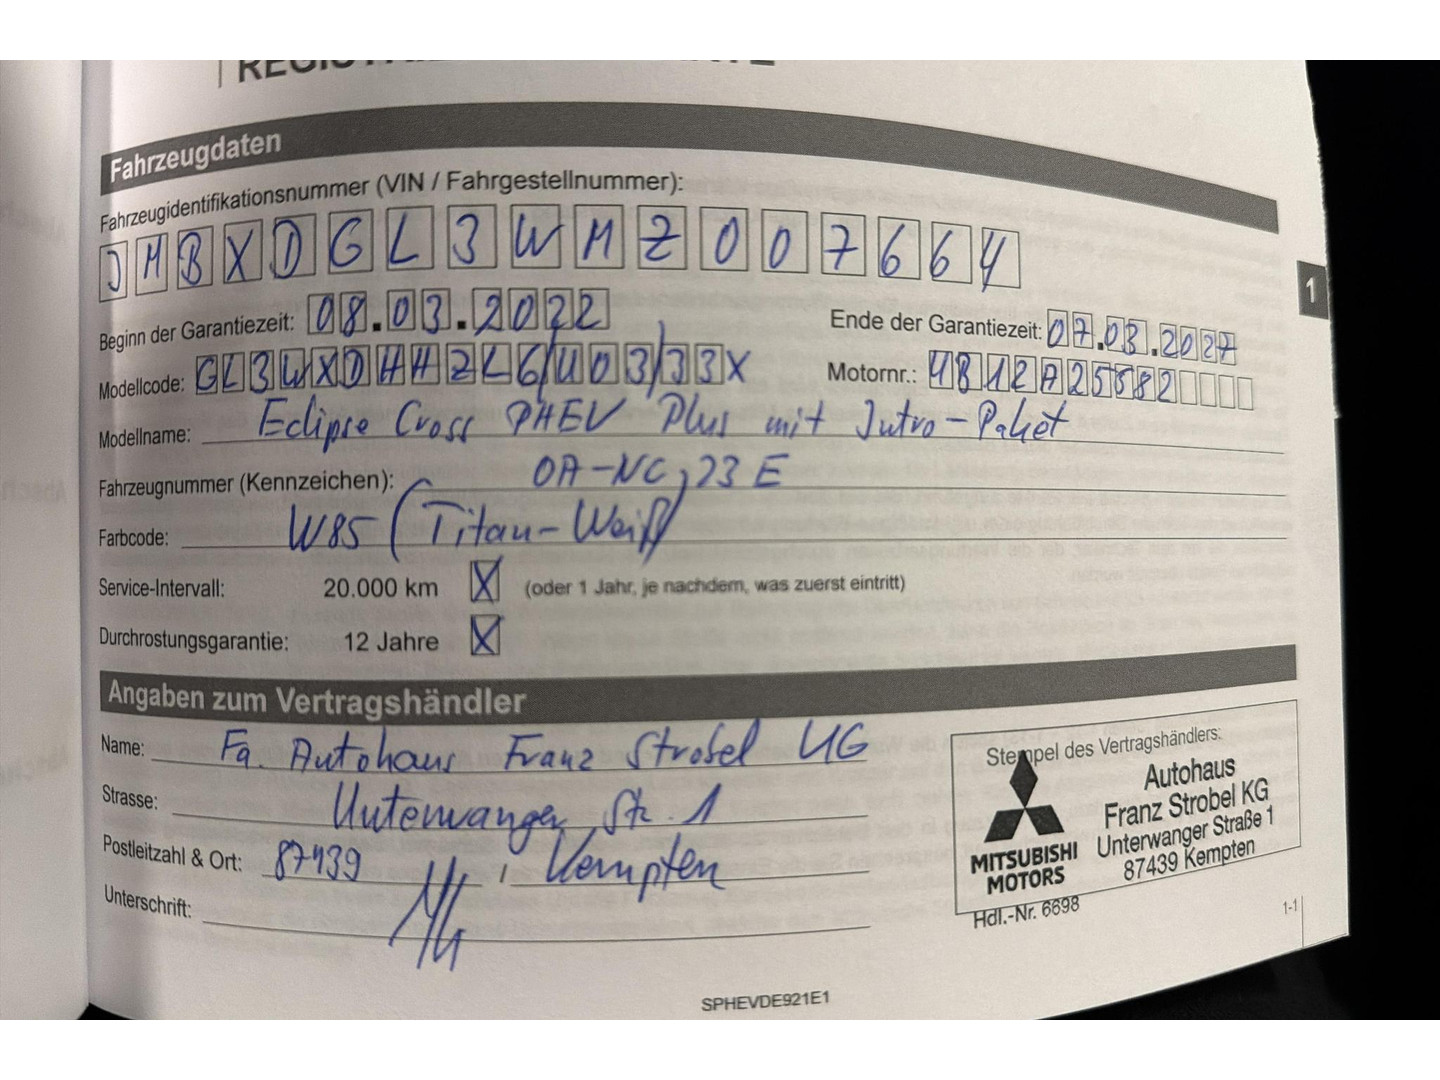 Fahrzeugdaten
Fahrzeugidentifikationsnummer (VIN / Fahrgestellnummer):
JMBXDGL3WMZ007664
Beginn der Garantiezeit: 08.03.2022 Ende der Garantiezeit: 07.03.2027
Modellcode: GL3WXDHHZL6/U03/33X Motornr.: 4B12A25582
Modellname: Eclipse Cross PHEV Plus mit Intro-Paket
Fahrzeugnummer (Kennzeichen): OA-NC 23 E
Farbcode: W85 (Titan-Weiß)
Service-Intervall: 20.000 km X (oder 1 Jahr, je nachdem, was zuerst eintritt)
Durchrostungsgarantie: 12 Jahre X
1
Angaben zum Vertragshändler
Name: Fa. Autohaus Franz Strobel KG
Strasse: Unterwanger Str. 1
Postleitzahl & Ort: 87439 / Kempten
Unterschrift:
Stempel des Vertragshändlers:
MITSUBISHI
MOTORS
Autohaus
Franz Strobel KG
Unterwanger Straße 1
87439 Kempten
Hdl.-Nr. 6698
1-1
SPHEVDE921E1